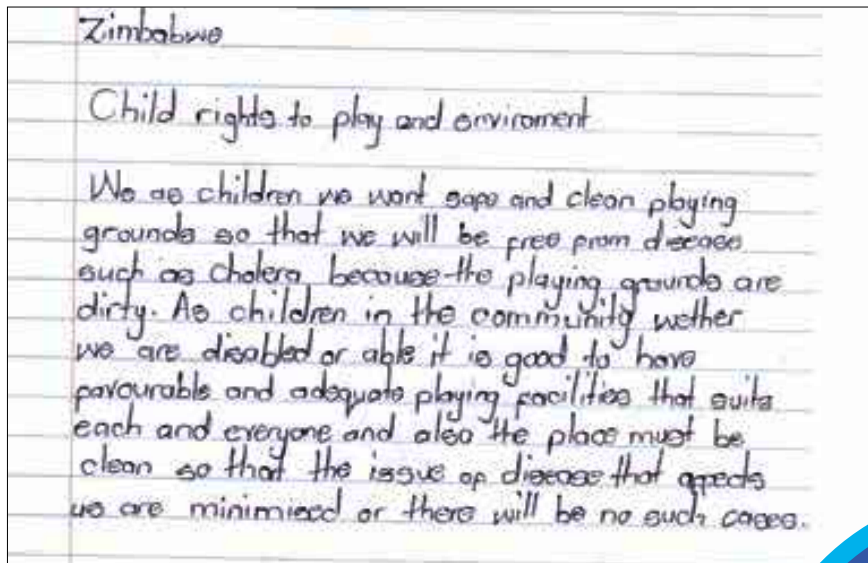 Zimbabwe
Child rights to play and enviroment
We as children we want safe and clean playing
grounds so that we will be free from disease
such as Cholera because the playing grounds are
dirty. As children in the community wether
we are disabled or able it is good to have
favourable and adequate playing facilities that suits
each and everyone and also the place must be
clean so that the issue of disease that affects
us are minimised or there will be no such cases.